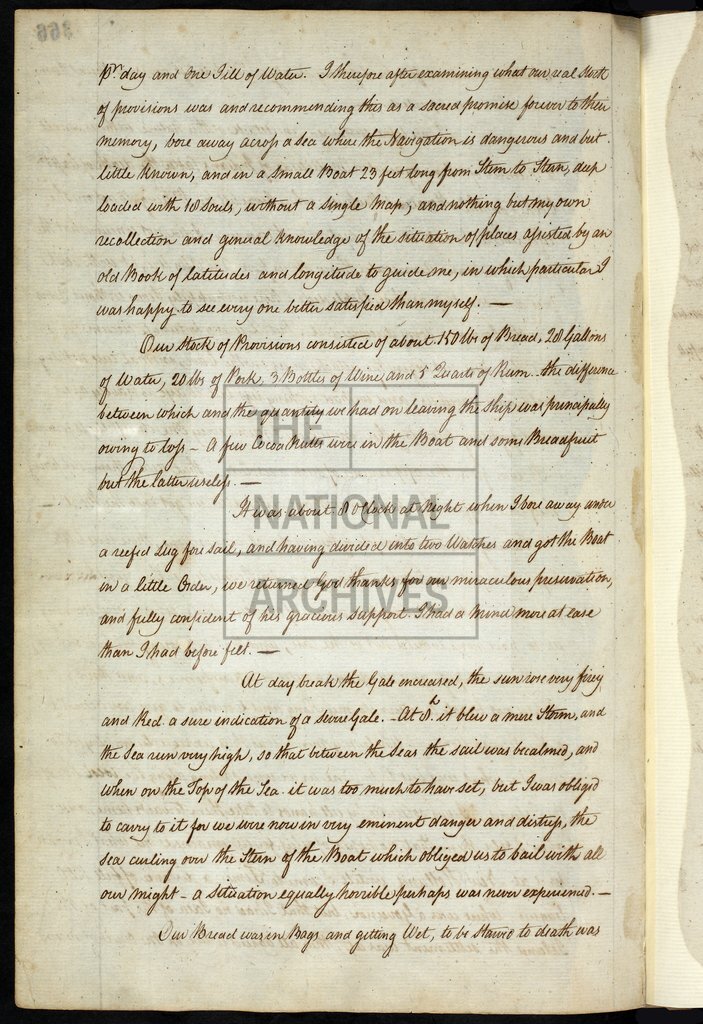 366
pr day and One Jill of Water. I therefore after examining what our real Stock
of provisions was and recommending this as a sacred promise forever to their
memory, bore away across a sea where the Navigation is dangerous and but
little known, and in a small Boat 23 feet long from Stem to Stern, deep
loaded with 18 Souls, without a single Map, and nothing but my own
recollection and general knowledge of the situation of places assisted by an
old Book of latitudes and longitude to guide me, in which particular I
was happy to see every one better satisfied than myself. —
Our Stock of Provisions consisted of about 150 lbs of Bread, 28 Gallons
of Water, 20 lbs of Pork, 3 Bottles of Wine and 5 Quarts of Rum - the difference
between which and the quantity we had on leaving the ship was principally
owing to loss - A few Cocoa Nutts were in the Boat and some Breadfruit
but the latter useless. —
It was about 8 oClock at Night when I bore away under
a reefed lug fore sail, and having divided into two Watches and got the Boat
in a little Order, we returned God thanks for our miraculous preservation,
and fully confident of his gracious support I had a mind more at ease
than I had before felt. —
At day break the Gale encreased, the sun rose very firey
and Red. a sure indication of a severe Gale. - At 8h it blew a mere Storm, and
the Sea run very high, so that between the Seas the sail was becalmed, and
when on the Top of the Sea it was too much to have set, but I was obliged
to carry to it for we were now in very eminent danger and distress, the
sea curling over the Stern of the Boat which obliged us to bail with all
our might - a situation equally horrible perhaps was never experienced. —
Our Bread was in Bags and getting Wet, to be starved to death was
THE
NATIONAL
ARCHIVES